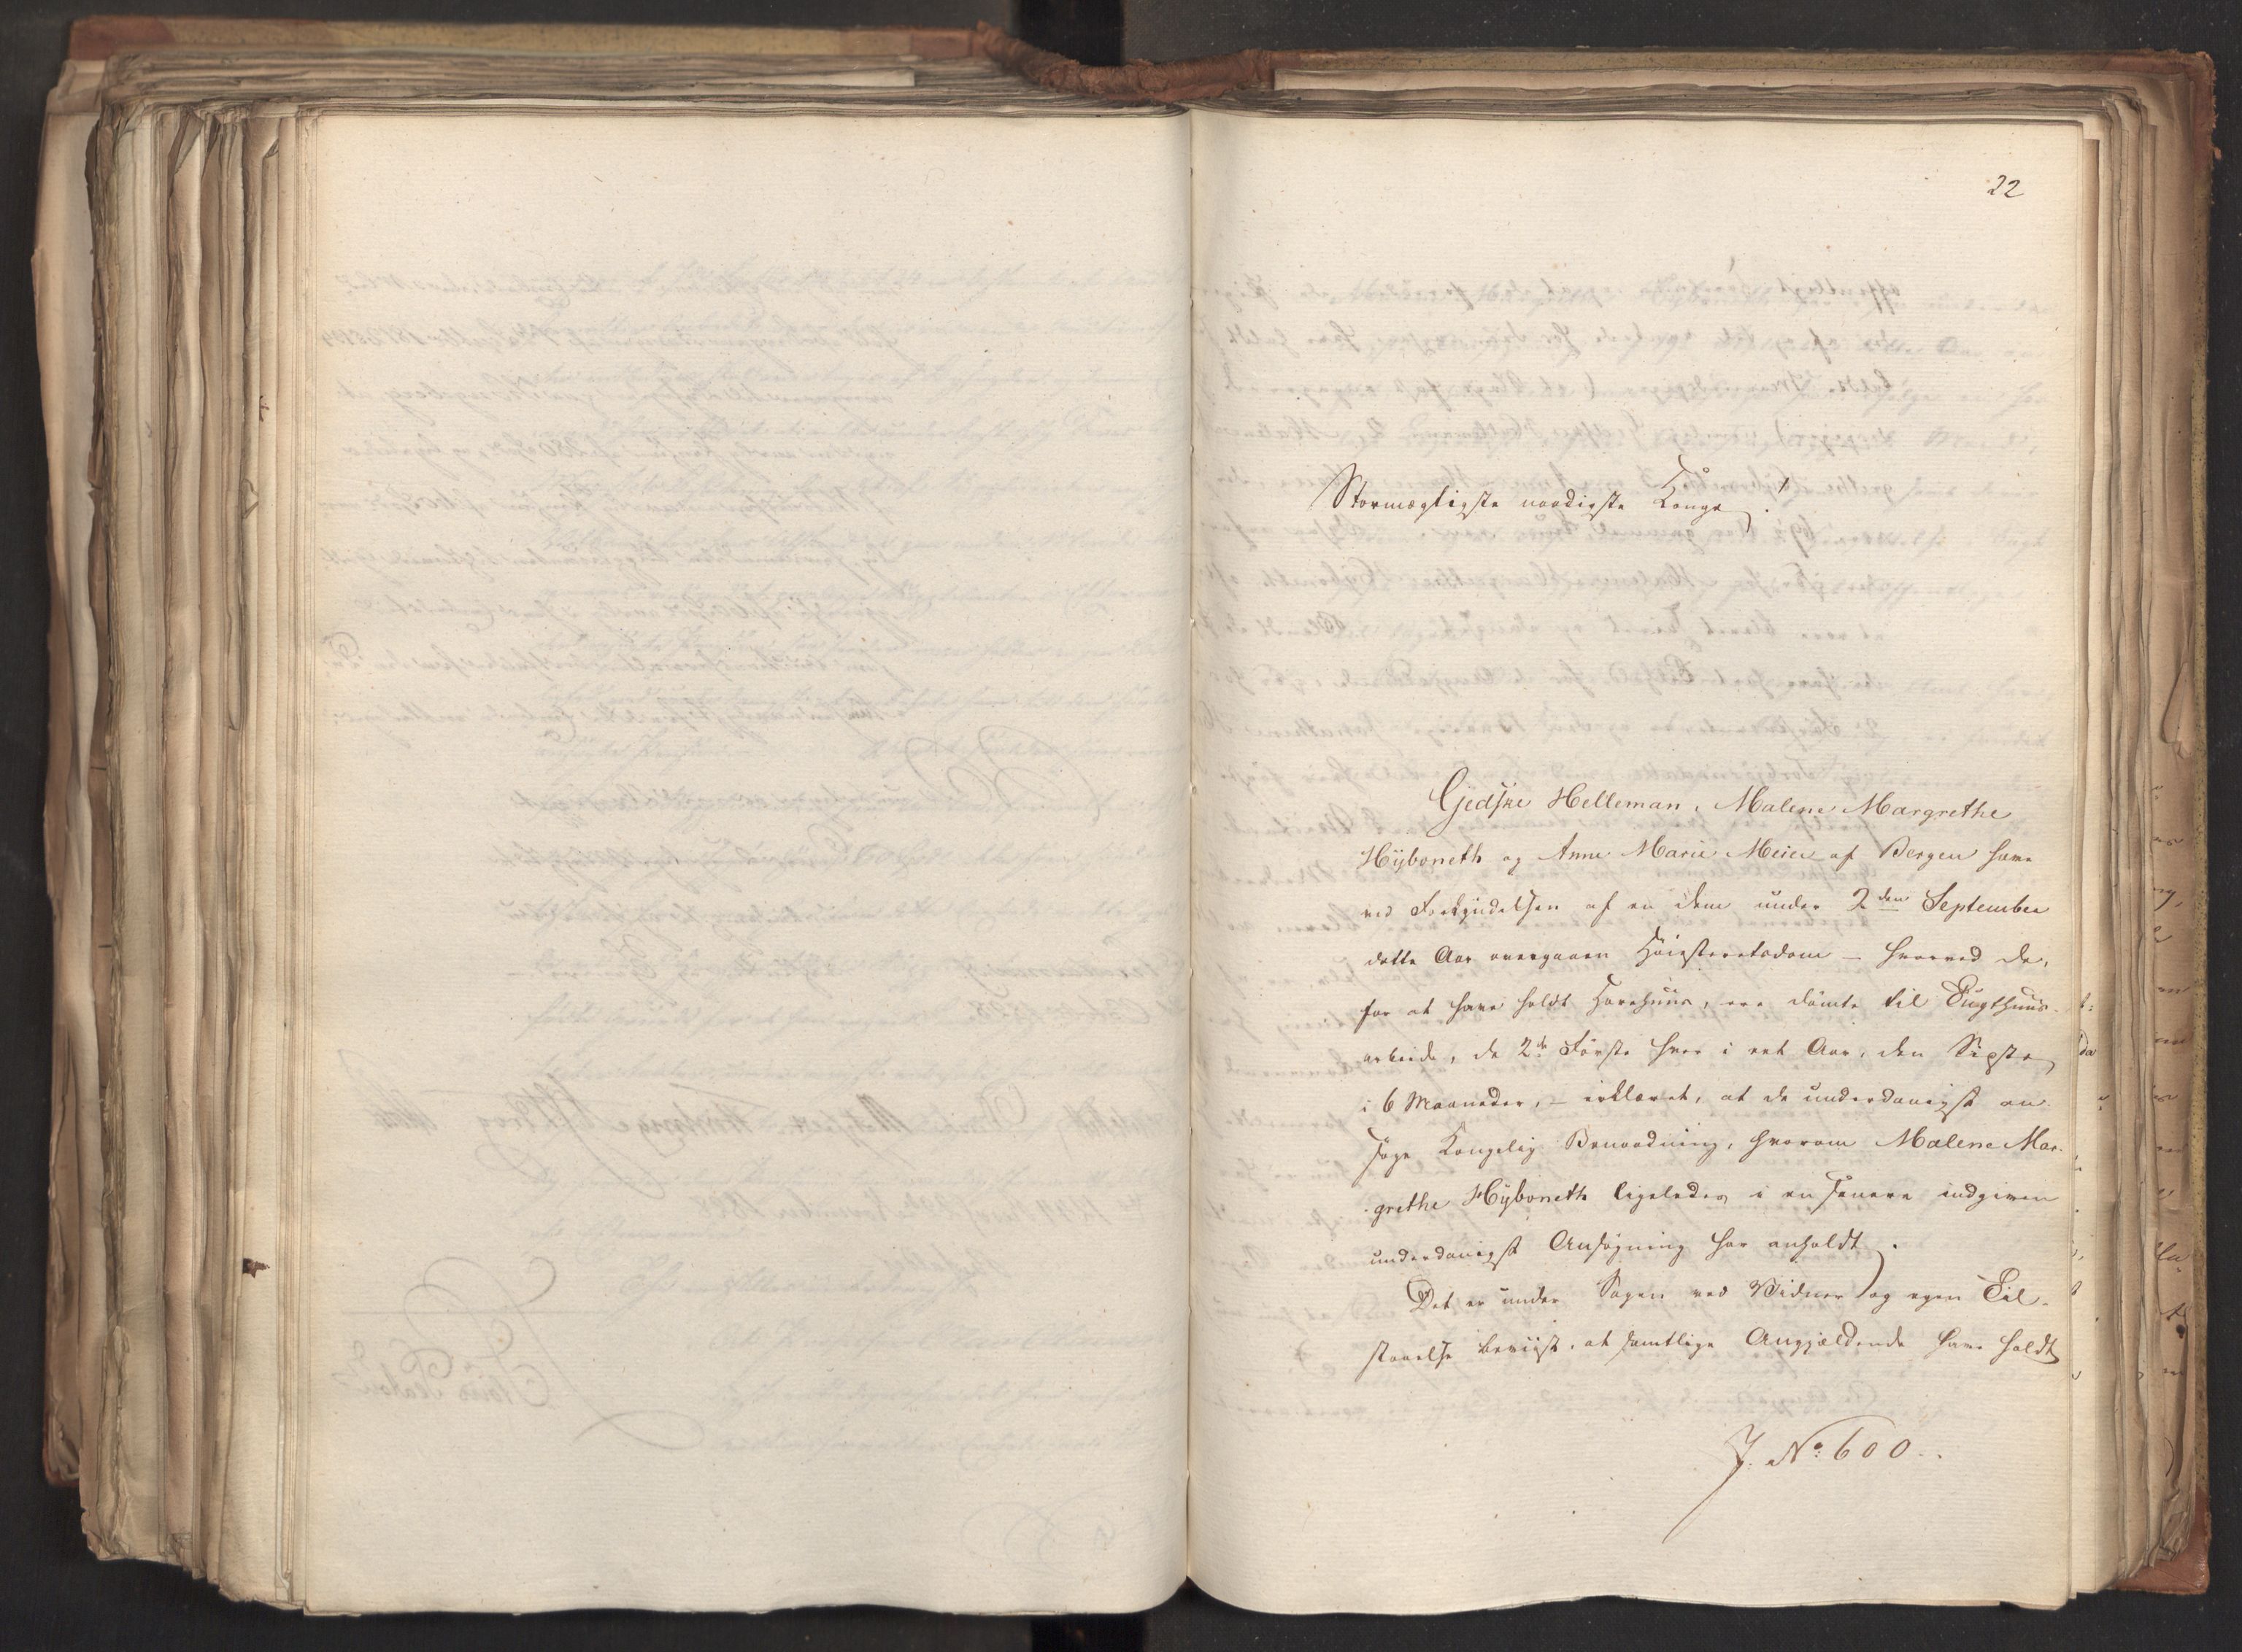 22
Stormægtigste naadigste Konge!
Gjedske Helleman, Malene Margrethe
Hÿboneth og Anne Marie Meier af Bergen have
ved Forkyndelsen af en dem under 2den September
dette Aar overgaaen Høiesteretsdom – hvorved de,
for at have holdt Horehuus, ere dömte til Tugthuus-
arbeide, de 2de Første hver i eet Aar, den Sidste
i 6 Maaneder, – erklæret, at de underdanigst an-
søge Kongelig Benaadning, hvorom Malene Mar-
grethe Hÿboneth ligeledes i en senere indgiven
underdanigst Ansøgning har anholdt.
Det er under Sagen ved Vidner og egen Til-
staaelse beviist, at samtlige Angjældende have holdt
J. No: 600.